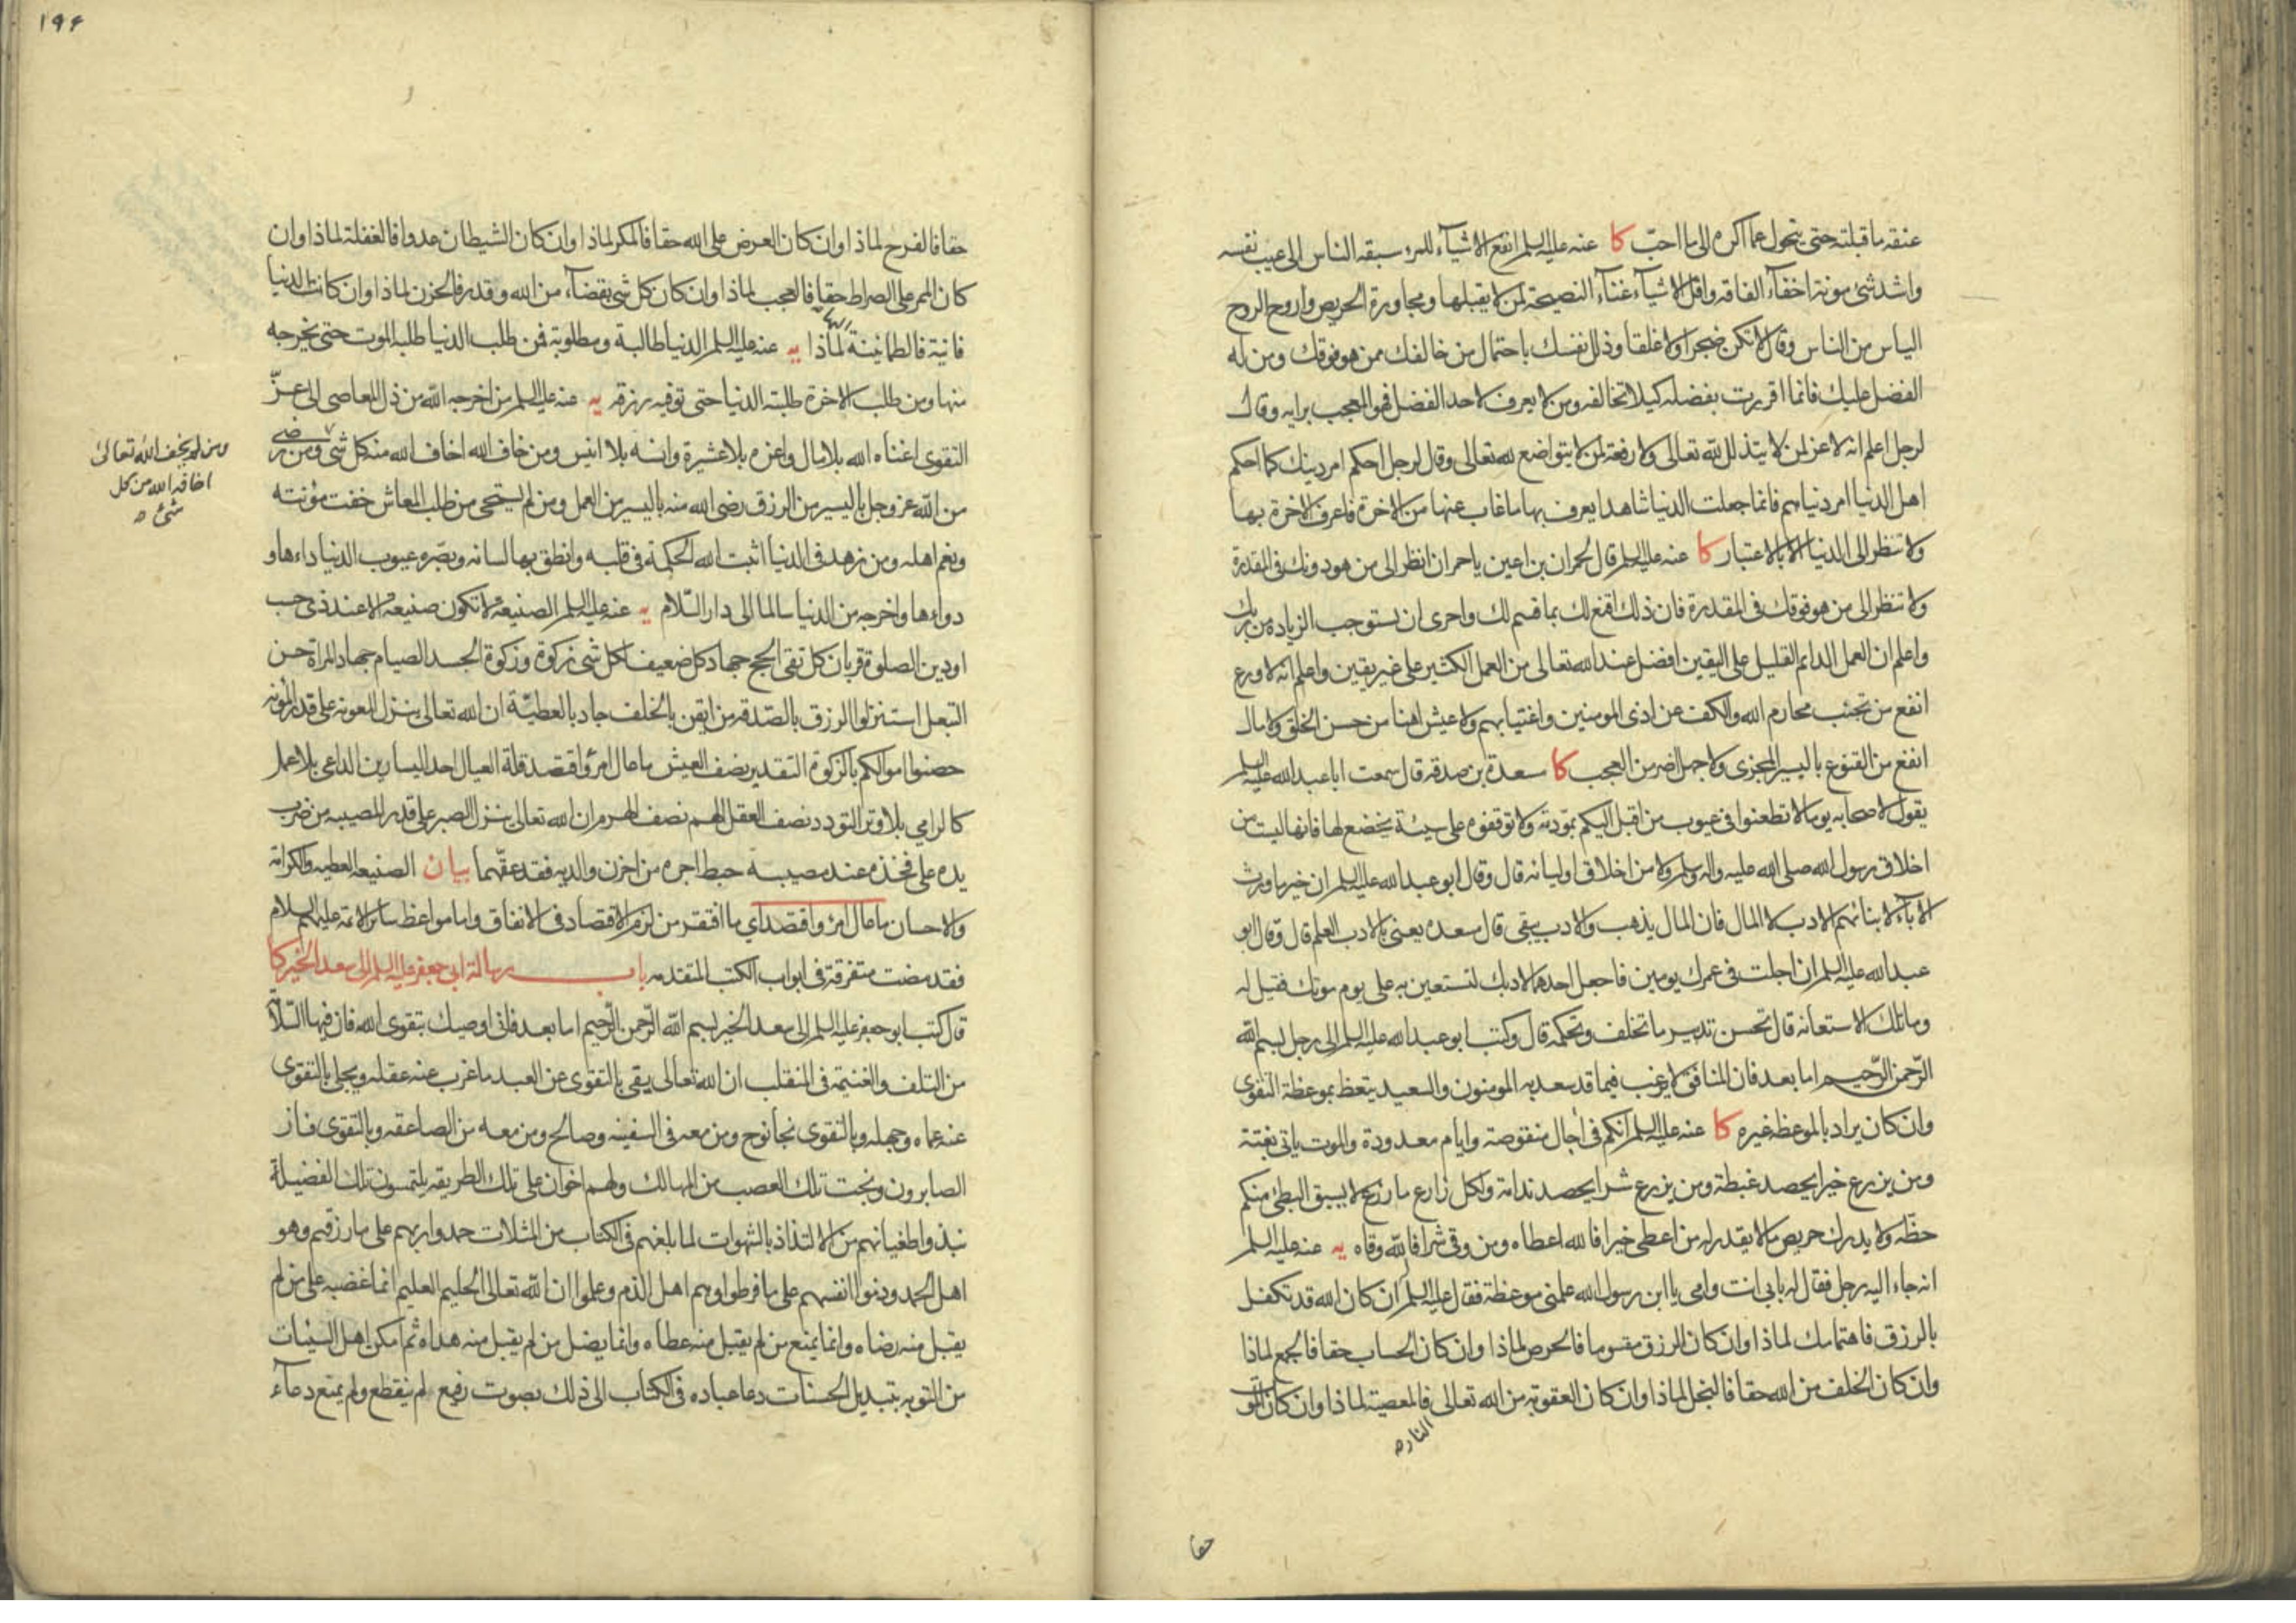 عنقه ما قبلته حتى يتحول عما اكره الى ما احبّ كا عنه عليه السلم انفع الاشيآء للمرء سبقه الناس الى عيب نفسه
واشد شئ مونة اخفآء الفاقه واقل الاشيآء غنآء النصيحة لمن لا يقبلها ومجاورة الحريص واروح الروح
الياس من الناس وقال لا تكن ضجرا ولا غلقا وذلل نفسك باحتمال من خالفك ممن هو فوقك ومن له
الفضل عليك فانما اقررت بفضله كيلا تخالفه ومن لا يعرف لاحد الفضل فهو المعجب برايه وقال
لرجل اعلم انه لا عز لمن لا يتذلل لله تعالى ولا رفعة لمن لا يتواضع لله تعالى وقال لرجل احكم امر دينك كما احكم
اهل الدنيا امر دنياهم فانما جعلت الدنيا شاهدا يعرف بها ما غاب عنها من الاخرة فاعرف الاخرة بها
ولا تنظر الى الدنيا الا بالاعتبار كا عنه عليه السلم قال لحمران بن اعين يا حمران انظر الى من هو دونك في المقدرة
ولا تنظر الى من هو فوقك في المقدرة فان ذلك اقنع لك بما قسم لك واحرى ان تستوجب الزيادة من ربك
واعلم ان العمل الدائم القليل على اليقين افضل عند الله تعالى من العمل الكثير على غير يقين واعلم انه لا ورع
انفع من تجنب محارم الله والكف عن اذى المومنين واغتيابهم ولا عيش اهنا من حسن الخلق ولا مال
انفع من القنوع باليسير المجزى ولا جهل اضر من العجب كا مسعدة بن صدقه قال سمعت ابا عبد الله عليه السلم
يقول لاصحابه يوما لا تطعنوا في عيوب من اقبل اليكم بمودته ولا توقفوه على سيئة يخضع لها فانها ليست من
اخلاق رسول الله صلى الله عليه واله وسلم ولا من اخلاق اوليائه قال وقال ابو عبد الله عليه السلم ان خير ما ورث
الابآء لابنائهم الادب لا المال فان المال يذهب والادب يبقى قال مسعده يعنى بالادب العلم قال وقال ابو
عبد الله عليه السلم ان اجلت في عمرك يومين فاجعل احدهما لادبك لتستعين به على يوم موتك فقيل له
وما تلك الاستعانه قال تحسن تدبير ما تخلف وتحكمه قال وكتب ابو عبد الله عليه السلم الى رجل بسم الله
الرّحمن الرّحيم اما بعد فان المنافق لا يرغب فيما قد سعد به المومنون والسعيد يتعظ بموعظة التقوى
وان كان يراد بالموعظة غيره كا عنه عليه السلم انكم في آجال منقوصة وايام معدودة والموت ياتى بغتة
ومن يزرع خيرا يحصد غبطة ومن يزرع شرا يحصد ندامة ولكل زارع ما زرع لا يسبق البطئ منكم
حظه ولا يدرك حريص ما لا يقدر له من اعطى خيرا فالله اعطاه ومن وقى شرا فالله وقاه يه عنه عليه السلم
انه جاء اليه رجل فقال له بابى انت وامى يا ابن رسول الله علمنى موعظة فقال عليه السلم ان كان الله قد تكفل
بالرزق فاهتمامك لماذا وان كان الرزق مقسوما فالحرص لماذا وان كان الحساب حقا فالجمع لماذا
وان كان الخلف من الله حقا فالبخل لماذا وان كان العقوبة من الله تعالى فالمعصية لماذا وان كان الموت
النار
حقا
١٩٤
حقا فالفرح لماذا وان كان العرض على الله حقا فالمكر لماذا وان كان الشيطان عدوا فالغفلة لماذا وان
كان الممر على الصراط حقا فالعجب لماذا وان كان كل شئ بقضآء من الله وقدره فالحزن لماذا وان كانت الدنيا
فانية فالطمانينة اليها لماذا يه عنه عليه السلم الدنيا طالبة ومطلوبة فمن طلب الدنيا طلبه الموت حتى يخرجه
منها ومن طلب الاخرة طلبته الدنيا حتى توفيه رزقه يه عنه عليه السلم من اخرجه الله من ذل المعاصى الى عزّ
التقوى اغناه الله بلا مال واعزه بلا عشيرة وانسه بلا انيس ومن خاف الله اخاف الله منه كل شئ ومن رضى
ومن لم يخف الله تعالى
اخافه الله من كل
شئ
من الله عز وجل باليسير من الرزق رضى الله منه باليسير من العمل ومن لم يستحى من طلب المعاش خفت مؤنته
ونعم اهله ومن زهد في الدنيا اثبت الله الحكمة في قلبه وانطق بها لسانه وبصّره عيوب الدنيا داءها و
دواءها واخرجه من الدنيا سالما الى دار السّلام يه عنه عليه السلم الصنيعة لا تكون صنيعة الا عند ذى حسب
او دين الصلوة قربان كل تقى الحج جهاد كل ضعيف لكل شئ زكوة وزكوة الجسد الصيام جهاد المراة حسن
التبعل استنزلوا الرزق بالصّدقه من ايقن بالخلف جاد بالعطيّة ان الله تعالى ينزل المعونه على قدر المؤنه
حصنوا اموالكم بالزكوة التقدير نصف العيش ما عال امرؤ اقتصد قلة العيال احد اليسارين الداعى بلا عمل
كالرامي بلا وتر التودد نصف العقل الهم نصف الهرم ان الله تعالى ينزل الصبر على قدر المصيبه من ضرب
يده على فخذه عند مصيبة حبط اجره من احزن والديه فقد عقّهما بيان الصنيعه العطيه والكرامة
والاحسان ما عال امرؤ اقتصد اي ما افتقر من لزم الاقتصاد في الانفاق واما مواعظ سائر الائمة عليهم السلام
فقد مضت متفرقة في ابواب الكتب المتقدمه باب رسالة ابى جعفر عليه السلم الى سعد الخير كا
قال كتب ابو جعفر عليه السلم الى سعد الخير بسم الله الرّحمن الرّحيم اما بعد فانى اوصيك بتقوى الله فان فيها السّلامة
من التلف والغنيمة في المنقلب ان الله تعالى يقى بالتقوى عن العبد ما عزب عنه عقله ويجلى بالتقوى
عنه عماه وجهله وبالتقوى نجا نوح ومن معه في السفينه وصالح ومن معه من الصاعقه وبالتقوى فاز
الصابرون ونجت تلك العصب من المهالك ولهم اخوان على تلك الطريقه يلتمسون تلك الفضيلة
نبذوا طغيانهم من الالتذاذ بالشهوات لما بلغهم في الكتاب من المثلات حمدوا ربهم على ما رزقهم وهو
اهل الحمد وذموا انفسهم على ما فرطوا وهم اهل الذم وعلموا ان الله تعالى الحليم العليم انما غضبه على من لم
يقبل منه رضاه وانما يمنع من لم يقبل منه عطاه وانما يضل من لم يقبل منه هداه ثم امكن اهل السيئات
من التوبه بتبديل الحسنات دعا عباده في الكتاب الى ذلك بصوت رفيع لم ينقطع ولم يمنع دعآء